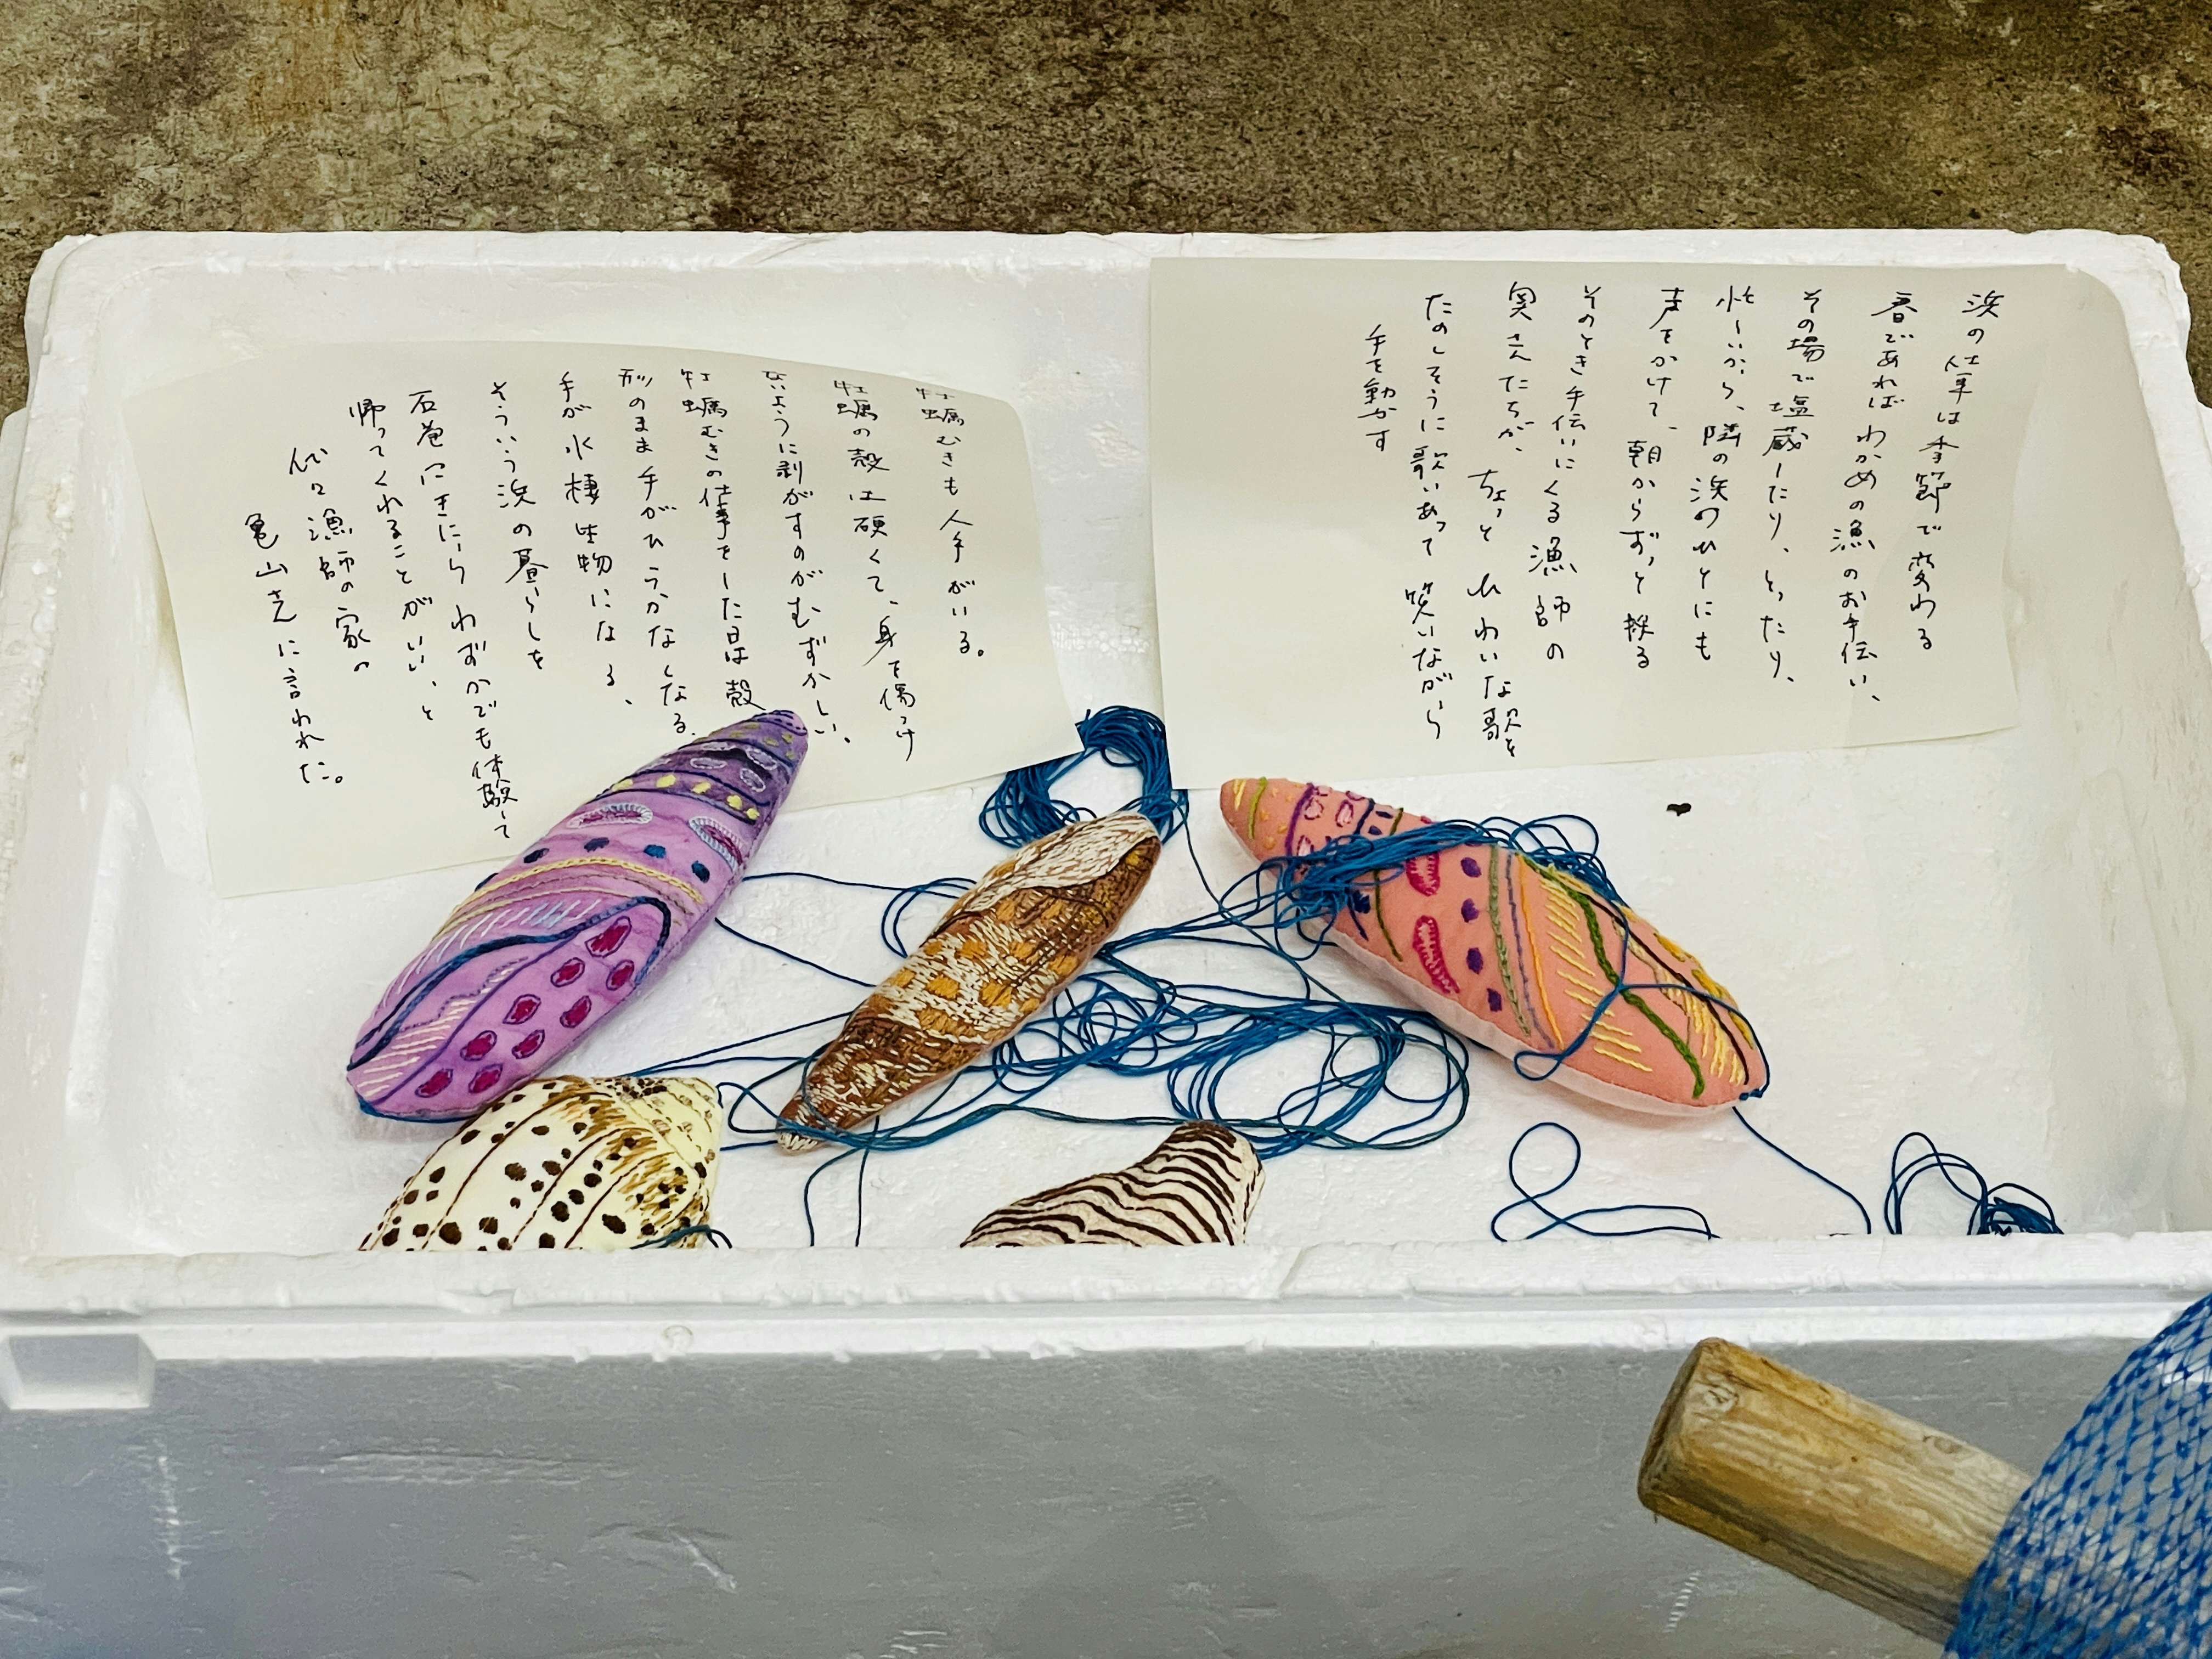 浜の仕事は季節で変わる
春であればわかめの漁のお手伝い、
その場で塩蔵したり、とったり、
忙しいから、隣の浜のひとにも
声をかけて、朝からずっと採る
そのとき手伝いにくる漁師の
奥さんたちが、ちょっとひわいな歌を
たのしそうに歌いあって笑いながら
手を動かす
牡蠣むきも人手がいる。
牡蠣の殻は硬くて、身を傷つけ
ないように剥がすのがむずかしい、
牡蠣むきの仕事をした日は殻
形のまま手がひらかなくなる、
手が水棲生物になる、
そういう浜の暮らしを
石巻にきたら わずかでも体験して
帰ってくれることがいい、と
代々漁師の家の
亀山さんに言われた。